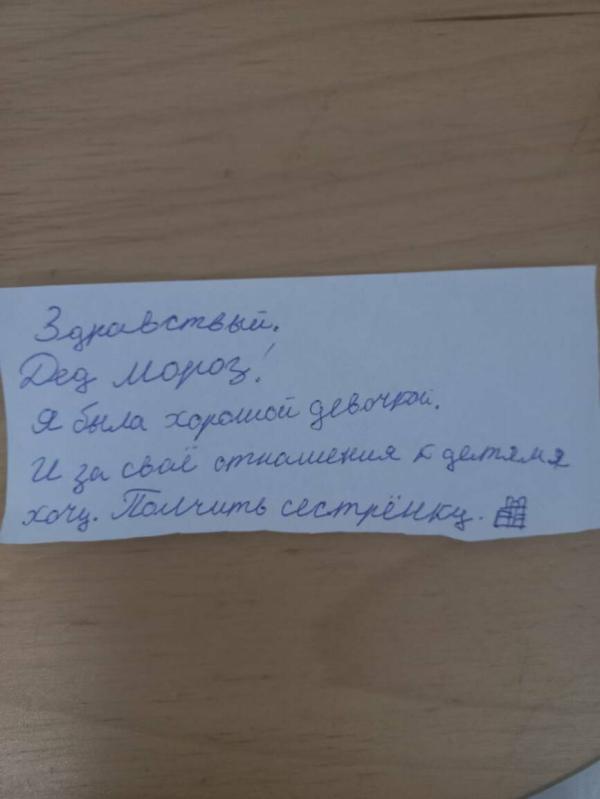 Здравствый.
Дед Мороз!
Я была хорошой девочкой.
И за своё отнашения к детямя
хочу. Полчить сестрёнку.